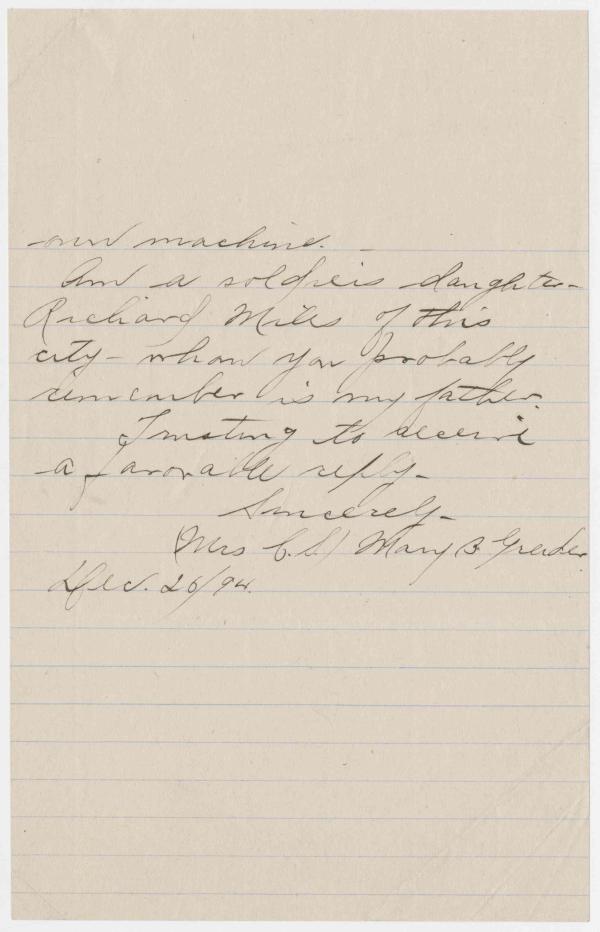 own machine. -
Am a soldiers daughter -
Richard Miles of this
city - whom you probably
remember is my father.
Trusting to receive
a favorable reply -
Sincerely -
(Mrs C. S.) Mary B. Greider.
Dec. 26/94.